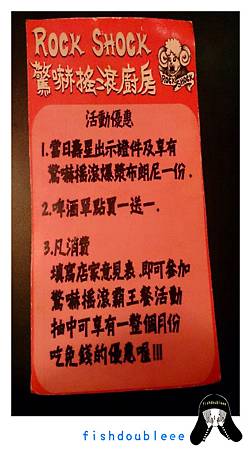 ROCK SHOCK
驚嚇搖滾廚房
活動優惠
1.當日壽星出示證件及享有
驚嚇搖滾爆漿布朗尼一份.
2.啤酒單點買一送一.
3.凡消費
填寫店家意見表.即可參加
驚嚇搖滾霸王餐活動
抽中可享有一整個月份
吃免錢的優惠喔!!!
fishdoubleee